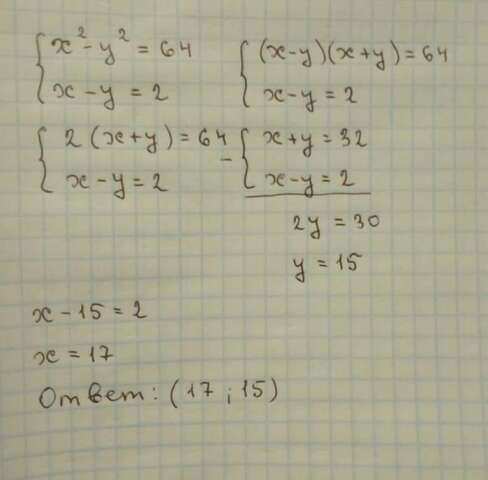 x² - y² = 64
x - y = 2
(x-y)(x+y) = 64
x-y = 2
2(x+y) = 64
x-y = 2
- x+y = 32
x-y = 2
2y = 30
y = 15
x - 15 = 2
x = 17
Ответ: (17 ; 15)